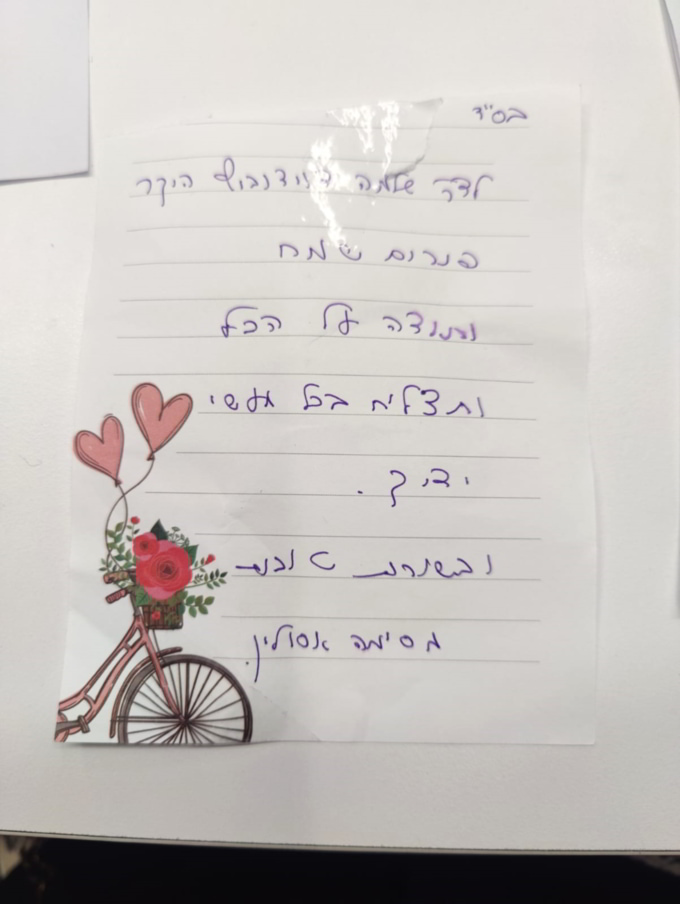 בס"ד
לדר שלמה דוידוביץ היקר
פורים שמח
ותודה על הכל
ותצליח בכל מעשי
ידיך.
ובשורות טובות
מסימה אסולין.